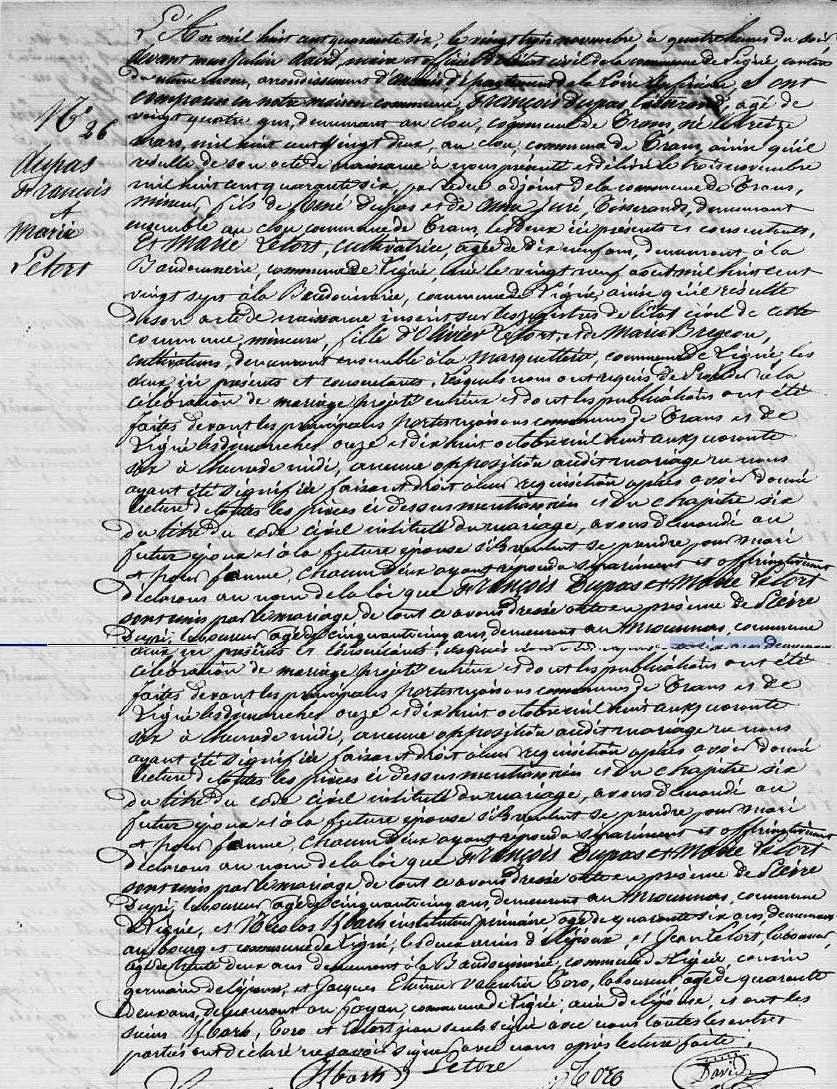 N° 26
Dupas
François
et
Marie
Letort
L'An mil huit cent quarante six, le vingt trois novembre à quatre heures du soir,
devant nous Julien David, maire et officier de l'état civil de la commune de Ligné, canton
du même nom, arrondissement d'Ancenis, département de la Loire Inférieure, Sont
comparus en notre maison commune, François Dupas, tisserand, agé de
vingt quatre ans, demeurant au clou, commune de Trans, né le treize
mars, mil huit cent vingt deux, au clou, commune de Trans, ainsi qu'il
résulte de son acte de naissance à nous présenté et délivré le trois novembre
mil huit cent quarante six, par le adjoint de la commune de Trans,
mineur, fils de René Dupas et de Anne Juré, Tisserands, demeurant
ensemble au clou commune de Trans, les deux ici présents et consentants,
Et Marie Letort, cultivatrice, agée de dix neuf ans, demeurant à la
Baudouinerie, commune de Ligné, née le vingt neuf août mil huit cent
vingt sept à la Baudouinerie, commune de Ligné, ainsi qu'il résulte
de son acte de naissance inscrit sur les registres de l'état civil de cette
commune, mineure, fille d'Olivier Letort, et de Marie Bregeon,
cultivateurs, demeurant ensemble à la commune de Ligné, les
deux ici présents et consentants, lesquels nous ont requis de procéder à la
célébration de mariage projeté entr'eux et dont les publications ont été
faites devant les principales portes maisons communes de Trans et de
Ligné les dimanches onze et dix huit octobre mil huit cent quarante
six à l'heure de midi, aucune opposition audit mariage ne nous
ayant été signifiée faisant droit à leur réquisition après avoir donné
lecture de toutes les pièces ci dessus mentionnées et du chapitre six
du titre du code civil intitulé du mariage, avons demandé au
futur époux et à la future épouse s'ils veulent se prendre pour mari
et pour femme, chacun d'eux ayant répondu séparément et affirmativement
déclarons au nom de la loi que François Dupas et Marie Letort
sont unis par le mariage, de tout ce avons dressé acte en présence de Pierre
Dupré, laboureur agé de cinquante cinq ans, demeurant au commune
deux ici présents et consentants, lesquels
célébration de mariage projeté entr'eux et dont les publications ont été
faites devant les principales portes maisons communes de Trans et de
Ligné les dimanches onze et dix huit octobre mil huit cent quarante
six à l'heure de midi, aucune opposition audit mariage ne nous
ayant été signifiée faisant droit à leur réquisition après avoir donné
lecture de toutes les pièces ci dessus mentionnées et du chapitre six
du titre du code civil intitulé du mariage, avons demandé au
futur époux et à la future épouse s'ils veulent se prendre pour mari
et pour femme, chacun d'eux ayant répondu séparément et affirmativement
déclarons au nom de la loi que François Dupas et Marie Letort
sont unis par le mariage, de tout ce avons dressé acte en présence de Pierre
Dupré, laboureur agé de cinquante cinq ans, demeurant au commune
Ligné, et Nicolas Ybarh instituteur primaire agé de quarante six ans, demeurant
au bourg et commune de Ligné, les deux amis d'époux, et Jean Letort, laboureur
agé de trente deux ans demeurant à la Baudouinerie, commune de Ligné, cousin
germain de l'épouse, et Jacques Valentin Toro, laboureur, agé de quarante
deux ans, demeurant au commune de Ligné, ami de l'époux, et ont les
sieurs Ybarh, Toro et Letort seuls signé avec nous toutes les autres
parties ont déclaré ne savoir signer avec nous après lecture faite.
Ybarh Letort Toro David